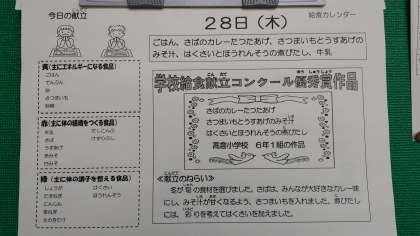 今日の献立
28日(木)
給食カレンダー
ごはん、さばのカレーたつたあげ、さつまいもとうすあげの
みそ汁、はくさいとほうれんそうの煮びたし、牛乳
黄(主にエネルギーになる食品)
ごはん
でんぷん
油
さつまいも
砂糖
赤(主に体の組織をつくる食品)
牛乳
さば
うすあげ
あみそ
白みそ
だしこんぶ
けずりぶし
緑(主に体の調子を整える食品)
しょうが
たまねぎ
にんじん
青ねぎ
はくさい
ほうれんそう
学校給食献立コンクール優秀賞作品
さばのカレーたつたあげ
さつまいもとうすあげのみそ汁
はくさいとほうれんそうの煮びたし
高倉小学校 6年1組の作品
≪献立のねらい≫
冬が旬の食材を選びました。さばは、みんなが大好きなカレー味
にし、みそ汁が甘くなるよう、さつまいもを入れました。煮びたし
には、彩りを考えてはくさいを加えました。